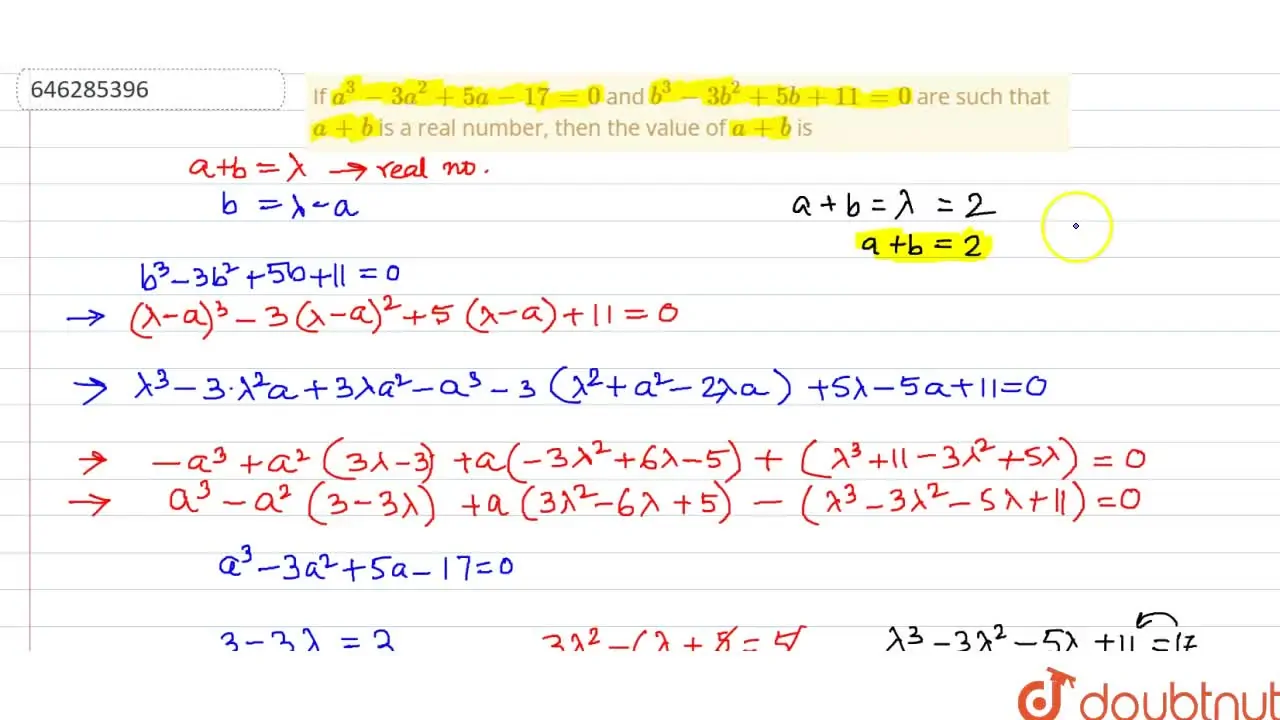 646285396
If a³ − 3a² + 5a − 17 = 0 and b³ − 3b² + 5b + 11 = 0 are such that
a + b is a real number, then the value of a + b is
a+b = λ → real no.
b = λ-a
a + b = λ = 2
a+b = 2
b³-3b²+5b+11 = 0
→ (λ-a)³ - 3(λ-a)² + 5(λ-a) + 11 = 0
→ λ³ - 3·λ²a + 3λa² - a³ - 3(λ²+a²-2λa) + 5λ-5a+11=0
→ -a³ + a²(3λ-3) + a(-3λ²+6λ-5) + (λ³+11-3λ²+5λ) = 0
→ a³ - a²(3-3λ) + a(3λ²-6λ+5) - (λ³-3λ²-5λ+11) = 0
a³-3a²+5a-17=0
3-3λ = 3
3λ²-6λ+5=5
λ³-3λ²-5λ+11=17
doubtnut